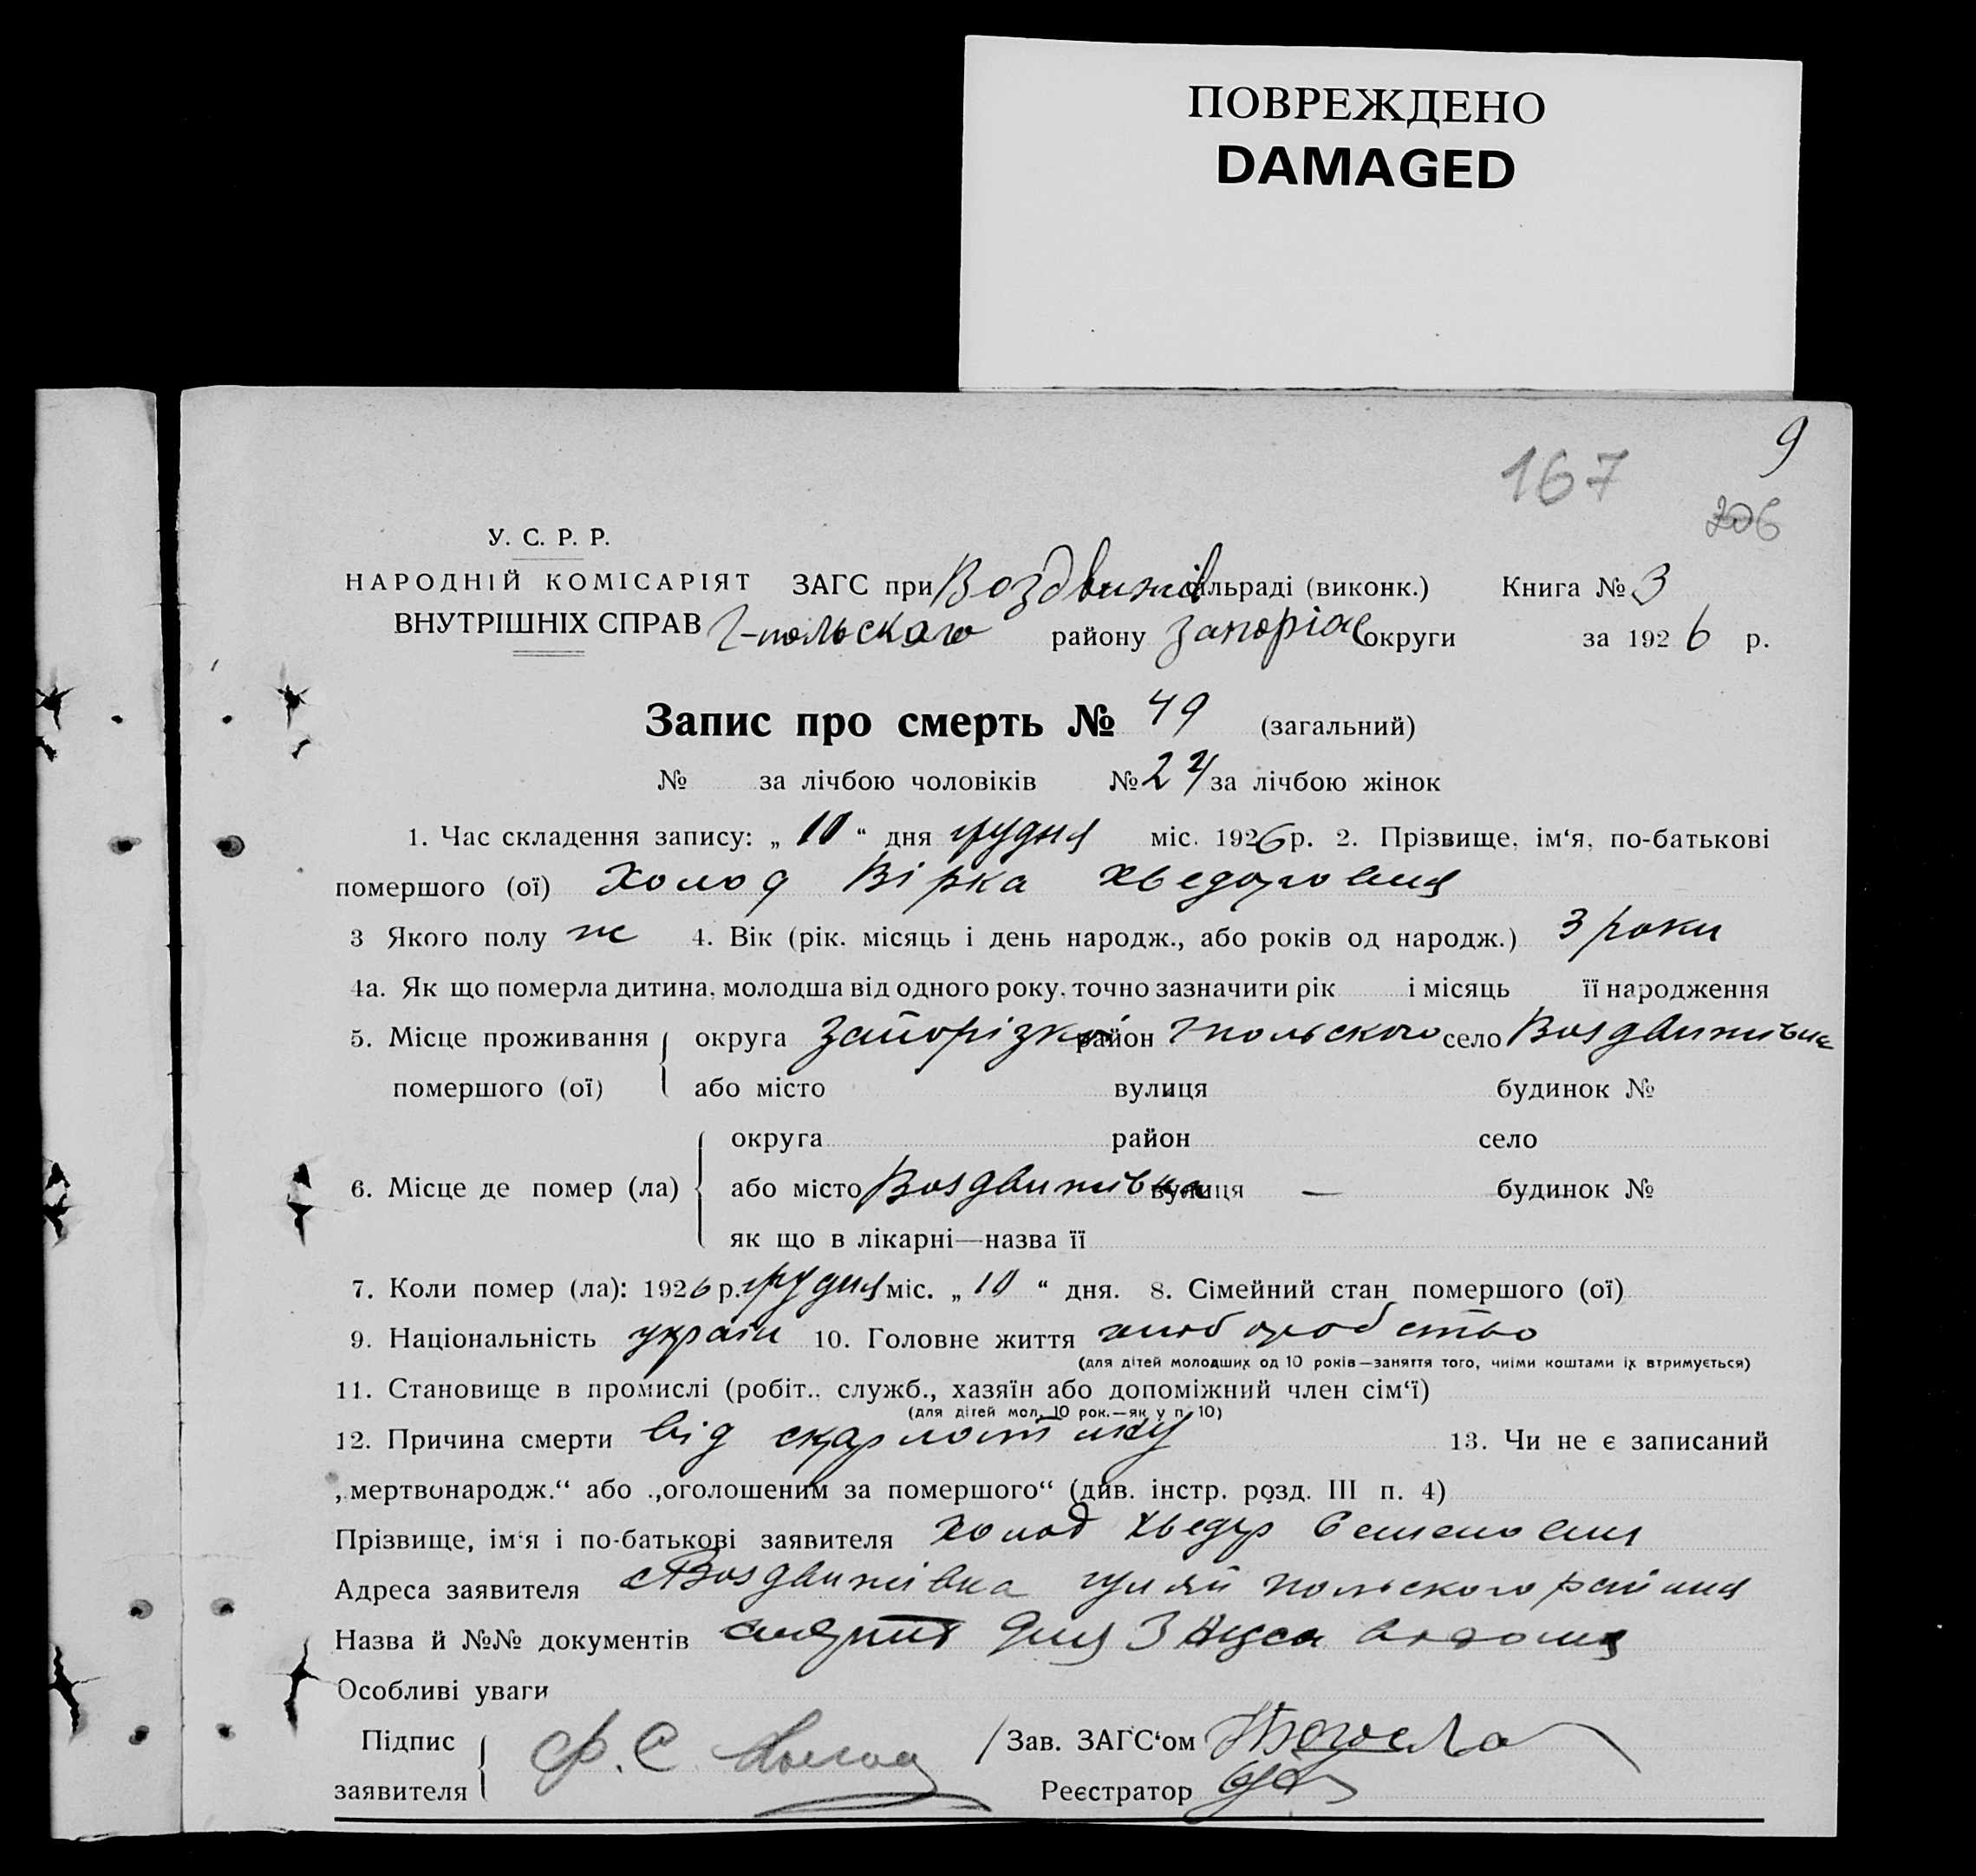 ПОВРЕЖДЕНО
DAMAGED
9
167
206
У. С. Р. Р.
НАРОДНІЙ КОМІСАРІЯТ ЗАГС при Воздвижів сільраді (виконк.) Книга № 3
ВНУТРІШНІХ СПРАВ Г-польского району Запоріж округи за 1926 р.
Запис про смерть № 49 (загальний)
№ за лічбою чоловіків № 24 за лічбою жінок
1. Час складення запису: „10“ дня грудня міс. 1926 р. 2. Прізвище, ім‘я, по-батькові
помершого (ої) Холод Вірка Хведоровна
3 Якого полу ж 4. Вік (рік. місяць і день народж., або років од народж.) 3 роки
4а. Як що померла дитина, молодша від одного року, точно зазначити рік і місяць її народження
5. Місце проживання округа Запорізкої район Гпольского село Воздвижівка
помершого (ої) або місто вулиця будинок №
округа район село
6. Місце де помер (ла) або місто Воздвижівка вулиця — будинок №
як що в лікарні—назва її
7. Коли помер (ла): 1926 р. грудня міс. „10“ дня. 8. Сімейний стан помершого (ої)
9. Національність україн 10. Головне життя хліборобство
(для дітей молодших од 10 років—заняття того, чиїми коштами їх втримується)
11. Становище в промислі (робіт., служб., хазяїн або допоміжний член сім‘ї)
(для дітей мол. 10 рок.—як у п. 10)
12. Причина смерти від скарлотіни 13. Чи не є записаний
„мертвонародж.“ або „оголошеним за помершого“ (див. інстр. розд. III п. 4)
Прізвище, ім‘я і по-батькові заявителя Холод Хведір Семенович
Адреса заявителя с Воздвижівка Гуляй польского района
Назва й №№ документів
Особливі уваги
Підпис Ф. С. Холод Зав. ЗАГС‘ом
заявителя Реєстратор